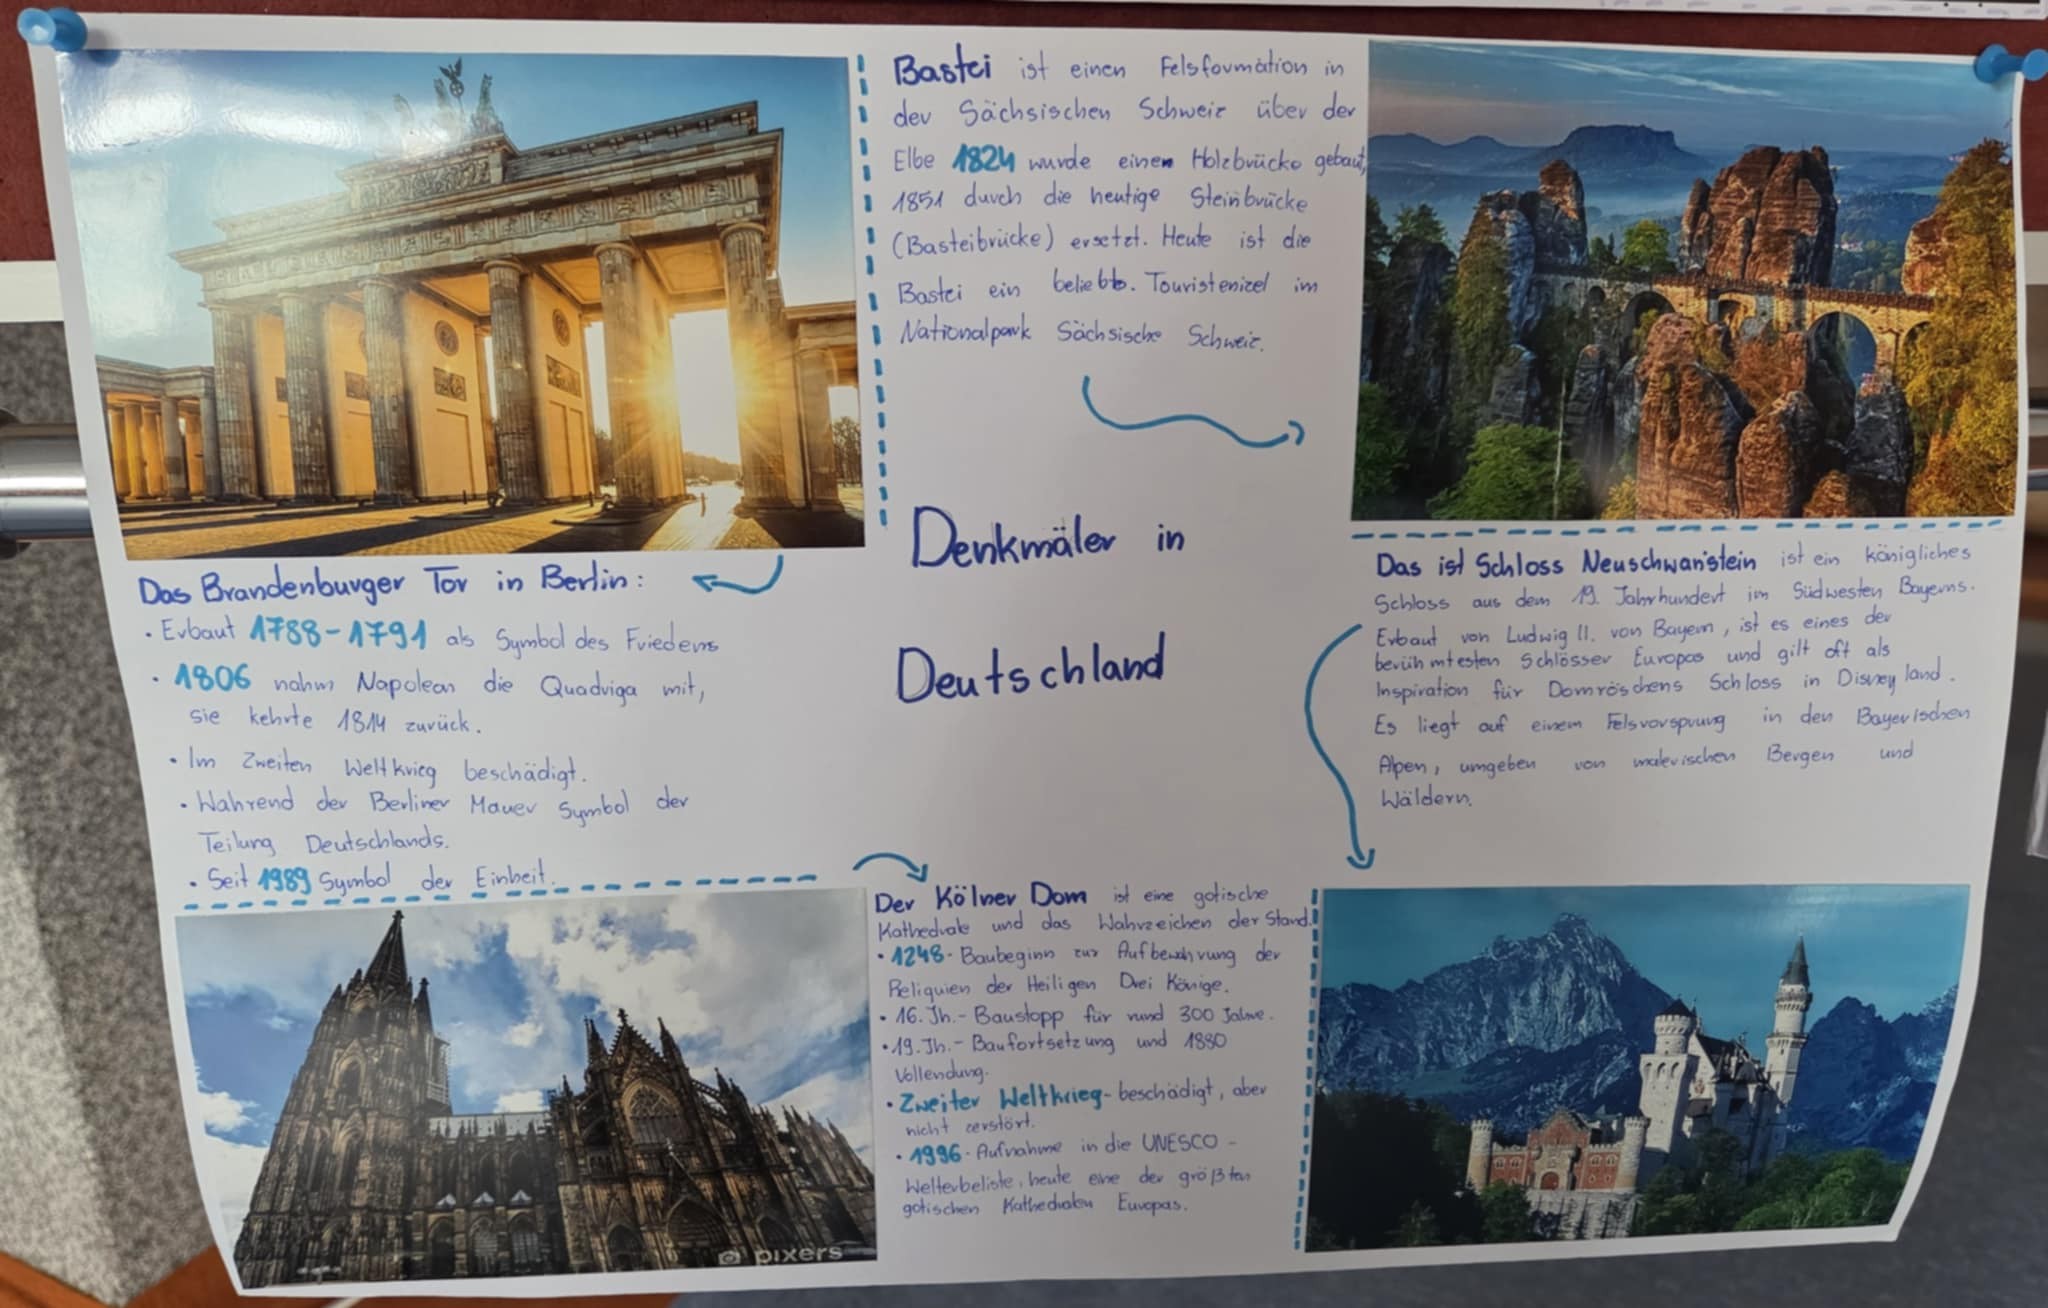 Bastei ist einen Felsformation in
der Sächsischen Schweiz über der
Elbe 1824 wurde einen Holzbrücke gebaut,
1851 durch die heutige Steinbrücke
(Basteibrücke) ersetzt. Heute ist die
Bastei ein beliebt. Touristenizel im
Nationalpark Sächsische Schweiz.
Denkmäler in
Deutschland
Das Brandenburger Tor in Berlin:
• Erbaut 1788-1791 als Symbol des Friedens
• 1806 nahm Napoleon die Quadriga mit,
sie kehrte 1814 zurück.
• Im Zweiten Weltkrieg beschädigt.
• Wahrend der Berliner Mauer Symbol der
Teilung Deutschlands.
• Seit 1989 Symbol der Einheit.
Das ist Schloss Neuschwanstein ist ein königliches
Schloss aus dem 19. Jahrhundert im Südwesten Bayerns.
Erbaut von Ludwig II. von Bayern, ist es eines der
berühmtesten Schlösser Europas und gilt oft als
Inspiration für Dornröschens Schloss in Disneyland.
Es liegt auf einem Felsvorsprung in den Bayerischen
Alpen, umgeben von malerischen Bergen und
Wäldern.
Der Kölner Dom ist eine gotische
Kathedrale und das Wahrzeichen der Stand.
• 1248- Baubeginn zur Aufbewahrung der
Reliquien der Heiligen Drei Könige.
• 16. Jh.- Baustopp für rund 300 Jahre.
• 19. Jh.- Baufortsetzung und 1880
Vollendung.
• Zweiter Weltkrieg- beschädigt, aber
nicht zerstört.
• 1996- Aufnahme in die UNESCO -
Welterbeliste, heute eine der größten
gotischen Kathedralen Europas.
pixers